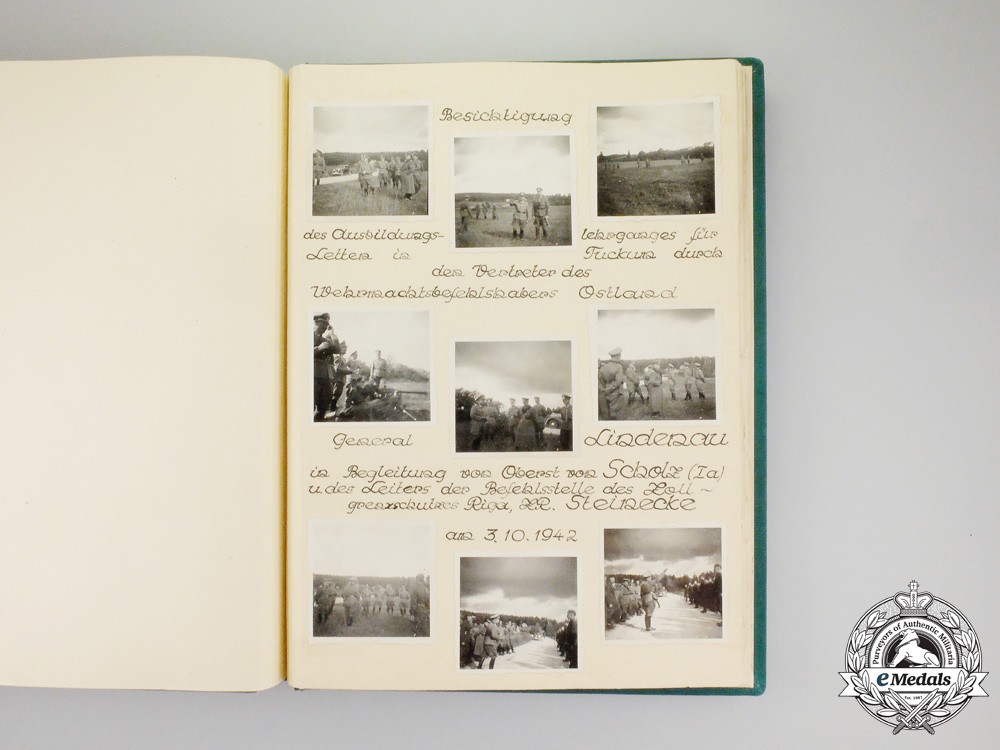 Besichtigung
des Ausbildungs- lehrganges für
Letten in Tuckum durch
den Vertreter des
Wehrmachtsbefehlshabers Ostland
General Lindenau
in Begleitung von Oberst von Scholz (Ia)
u. des Leiters der Befehlsstelle des Zoll-
grenzschutzes Riga, ZR. Steinecke
am 3.10.1942
Purveyors of Authentic Militaria
eMedals
Est. 1987